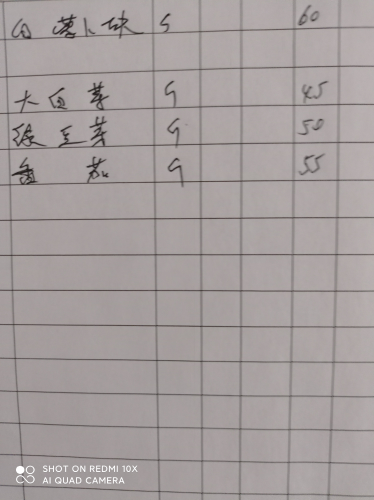 白萝卜块 5 60
大豆芽 9 45
绿豆芽 9 50
香菇 9 55
SHOT ON REDMI 10X
AI QUAD CAMERA